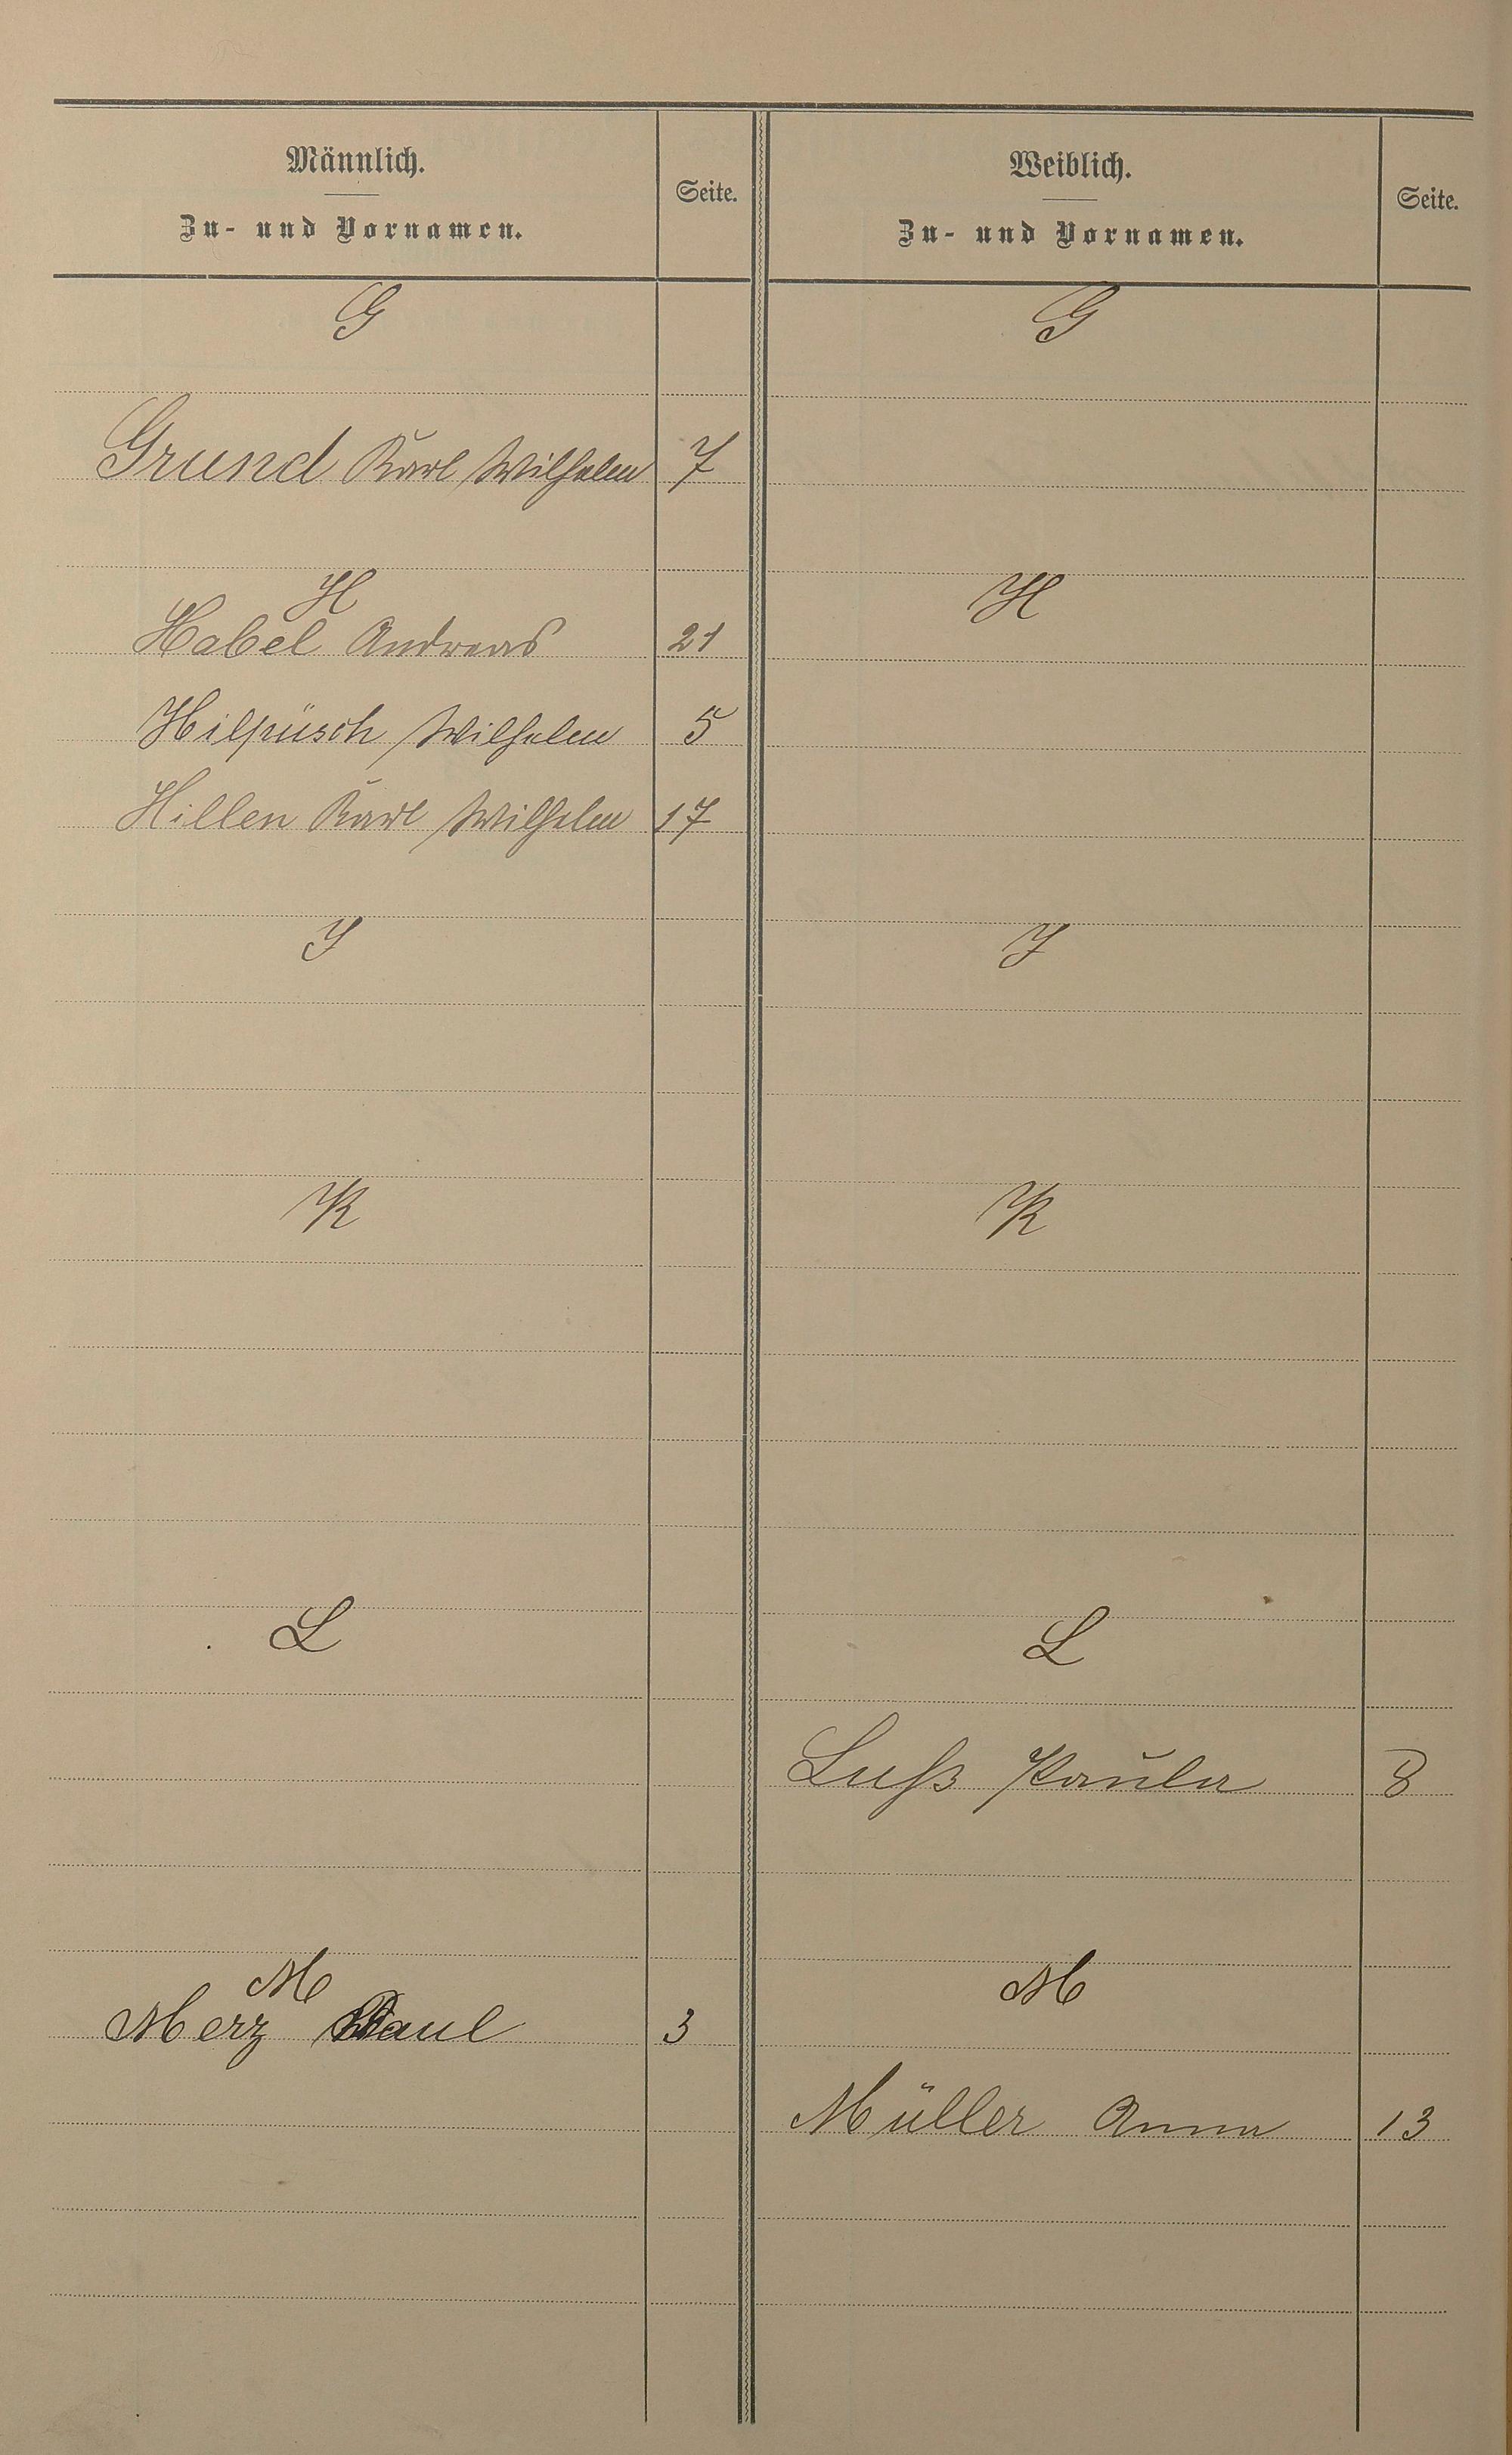 Männlich.
Zu- und Vornamen.
Seite.
Weiblich.
Zu- und Vornamen.
Seite.
G
G
Grund Karl Wilhelm 7
H
H
Habel Andreas 21
Hilpüsch Wilhelm 5
Hillen Karl Wilhelm 17
J
J
K
K
L
L
Luß Paula 8
M
M
Merz Paul 3
Müller Anna 13